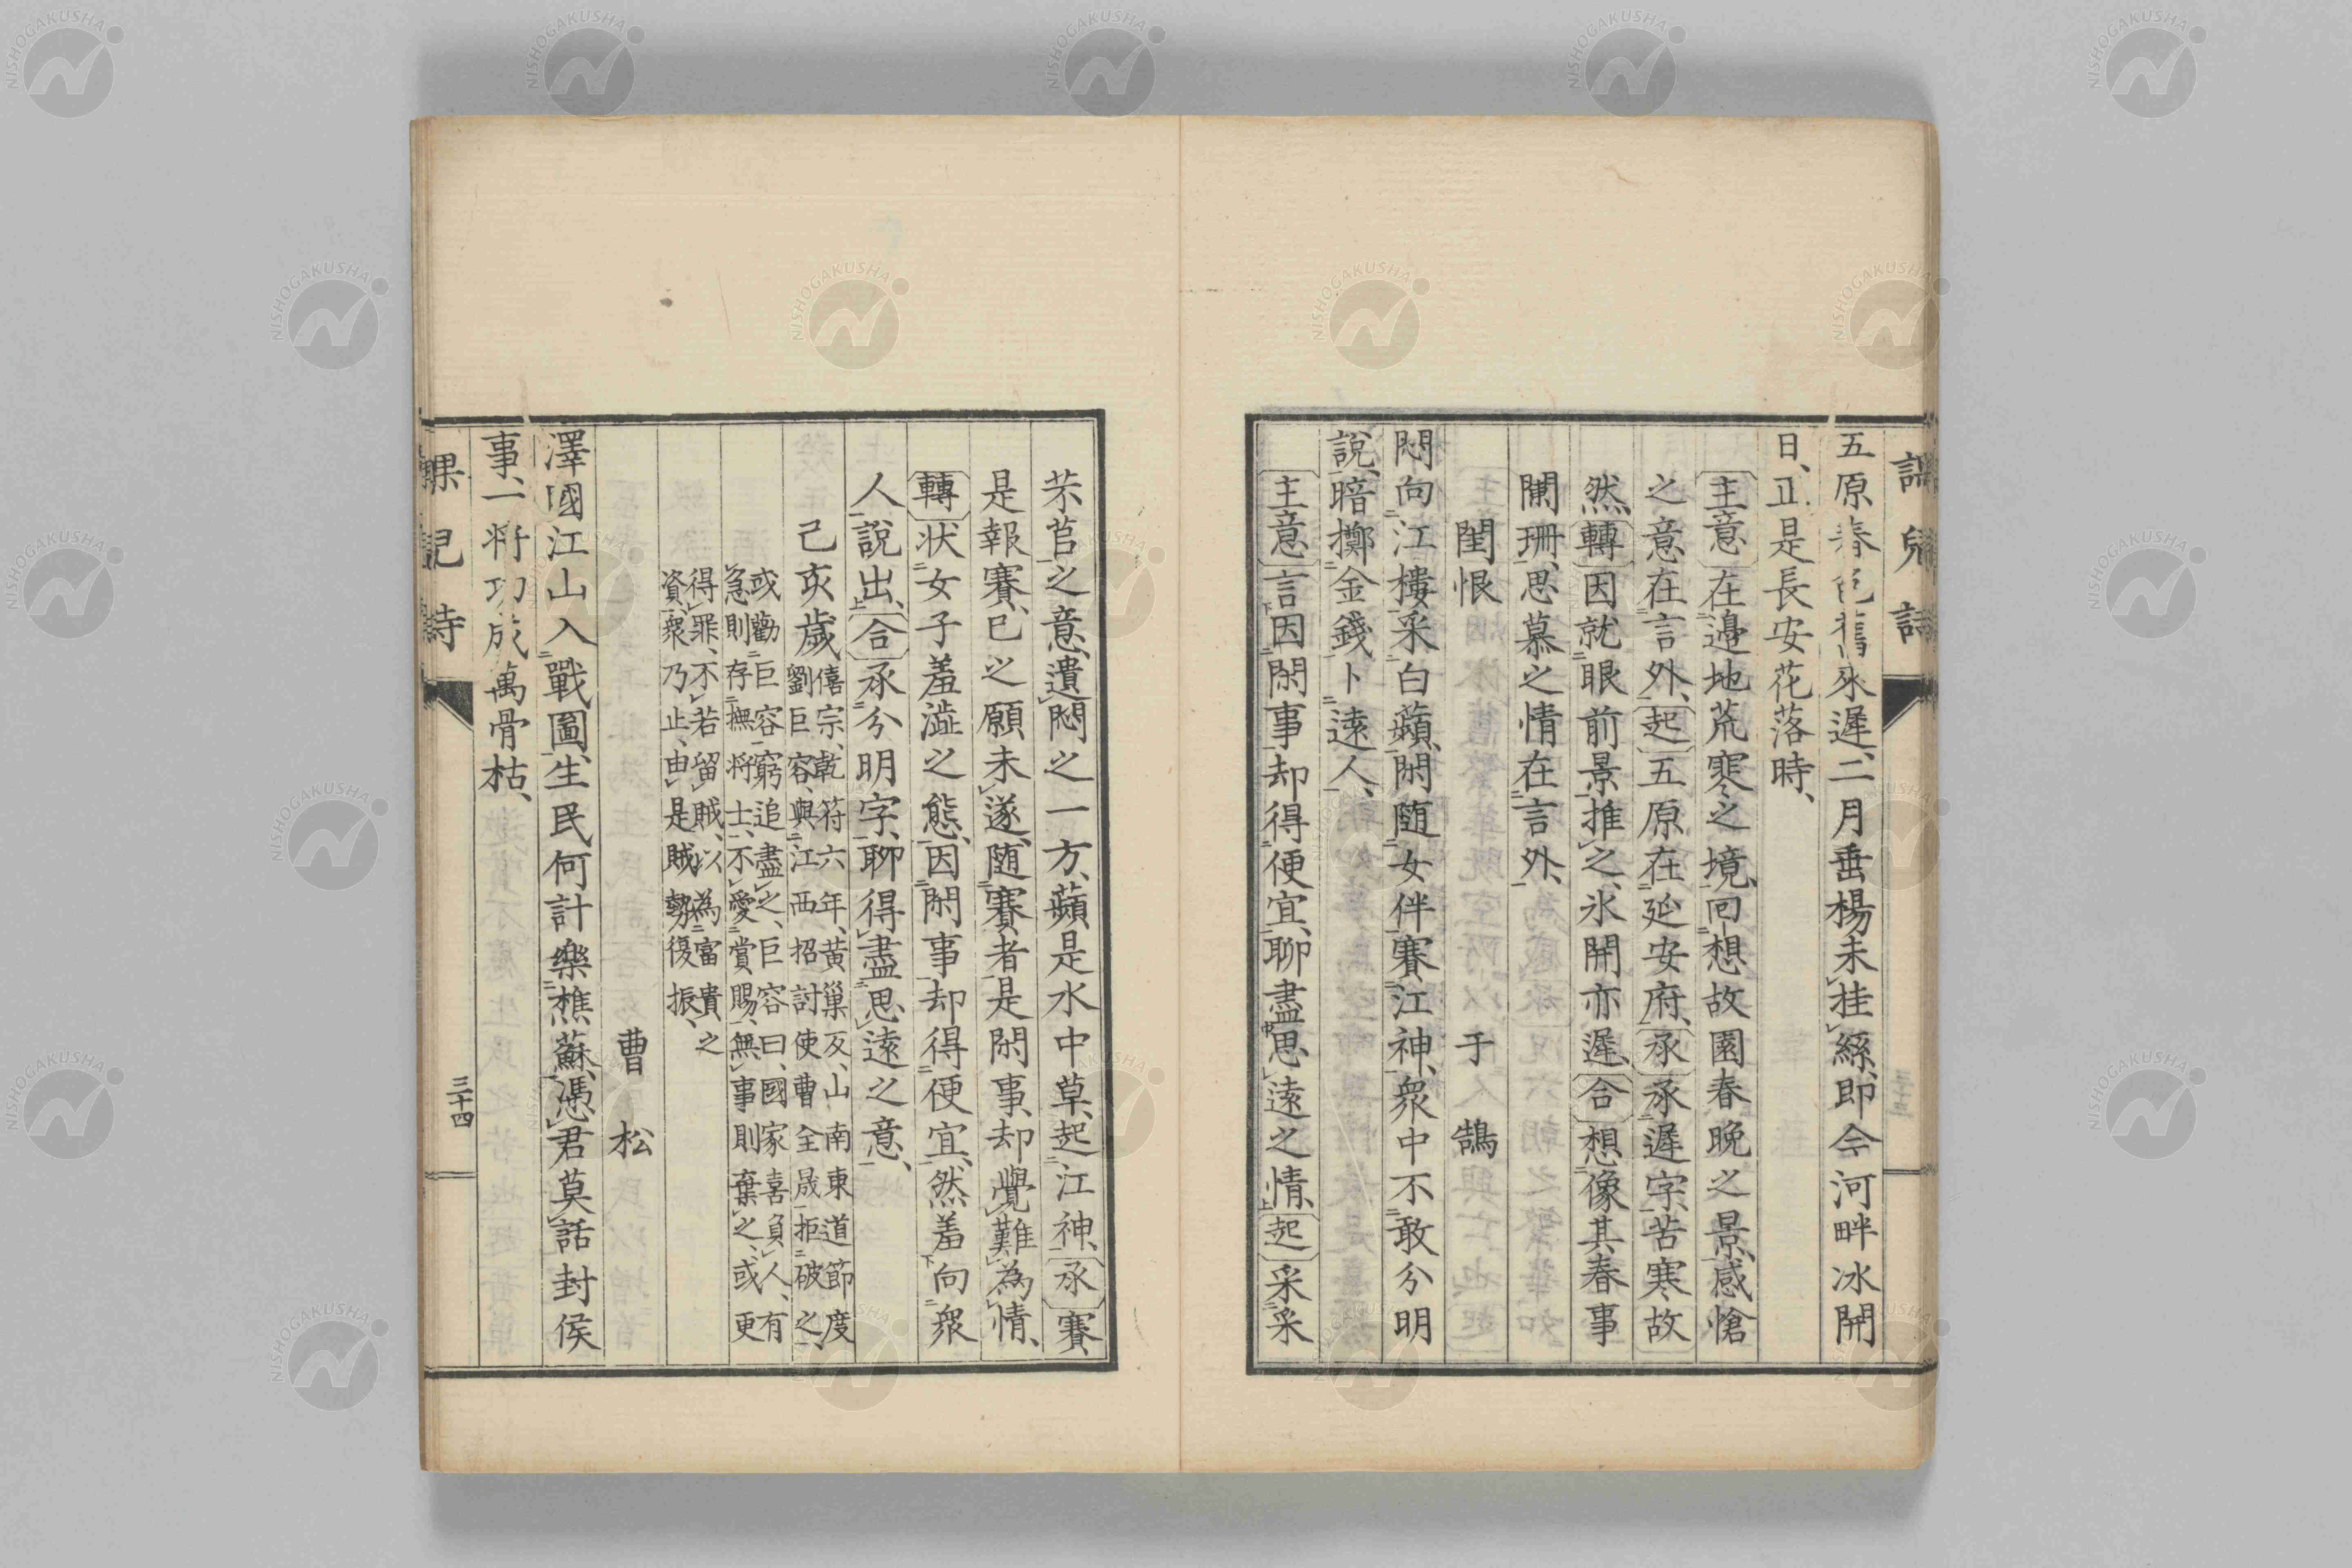 五原春色舊來遲、二月垂楊未挂絲、即今河畔冰開
日、正是長安花落時、
主意在邊地荒寒之境、回想故園春晚之景、感愴
之意在言外、起五原在延安府、承承遲字、苦寒故
然、轉因就眼前景推之、氷開亦遲、合想像其春事
闌珊、思慕之情在言外、
閨恨 于鵠
悶向江樓采白蘋、閑隨女伴賽江神、眾中不敢分明
說、暗擲金錢卜遠人、
主意言因閑事却得便宜、聊盡思遠之情、起采采
芣苢之意、遣悶之一方、蘋是水中草、起江神、承賽、
是報賽、已之願未遂、隨賽者是閑事、却覺難為情、
轉狀女子羞澁之態、因閑事却得便宜、然羞向眾
人說出、合承分明字、聊得盡思遠之意、
己亥歲 僖宗、乾符六年、黃巢反、山南東道節度
劉巨容、與江西招討使曹全晟拒破之、
或勸巨容窮追盡之、巨容曰、國家喜負人、有
急則存撫將士、不愛賞賜、無事則棄之、或更
得罪、不若留賊、以為富貴之
資、眾乃止、由是賊勢復振、
曹松
澤國江山入戰圖、生民何計樂樵蘇、憑君莫話封侯
事、一將功成萬骨枯、
課兒詩
三十四